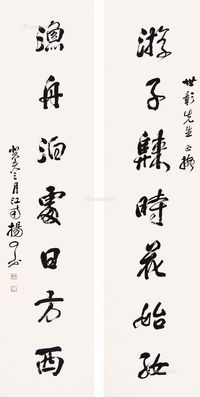 世彰先生正擬
游子騑時花始放
漁舟泊處日方西
癸亥三月江南楊